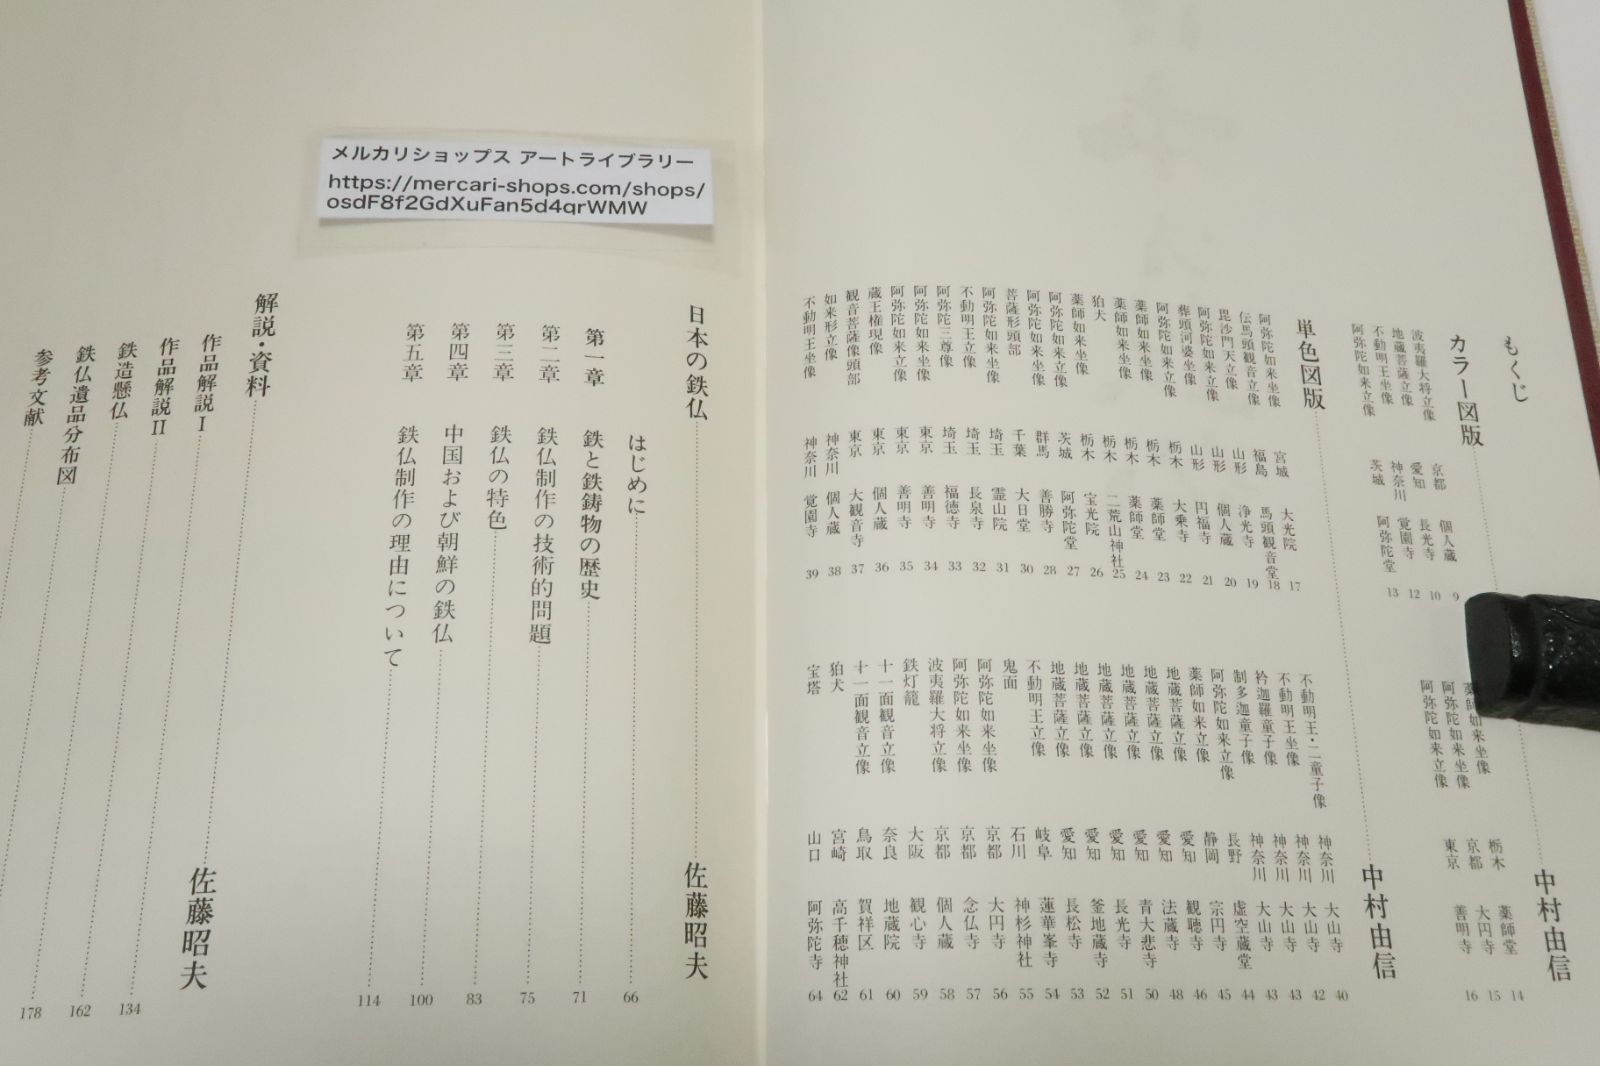 もくじ
カラー図版 中村由信
波夷羅大将立像 京都 個人蔵 9
地蔵菩薩立像 愛知 長光寺 10
不動明王坐像 神奈川 覚園寺 12
阿弥陀如来立像 茨城 阿弥陀堂 13
薬師如来坐像 栃木 薬師堂 14
阿弥陀如来坐像 京都 大円寺 15
阿弥陀如来立像 東京 善明寺 16
単色図版 中村由信
阿弥陀如来坐像 宮城 大光院 17
伝馬頭観音立像 福島 馬頭観音堂 18
毘沙門天立像 山形 浄光寺 19
阿弥陀如来立像 山形 個人蔵 20
葬頭河婆坐像 山形 円福寺 21
阿弥陀如来立像 栃木 大乗寺 22
薬師如来坐像 栃木 薬師堂 23
薬師如来坐像 栃木 薬師堂 24
狛犬 栃木 二荒山神社 25
薬師如来坐像 栃木 宝光院 26
阿弥陀如来立像 茨城 阿弥陀堂 27
阿弥陀如来坐像 群馬 善勝寺 28
菩薩形頭部 千葉 大日堂 30
阿弥陀如来坐像 埼玉 霊山院 31
不動明王立像 埼玉 長泉寺 32
阿弥陀三尊像 埼玉 福徳寺 33
阿弥陀如来坐像 東京 善明寺 34
阿弥陀如来立像 東京 善明寺 35
蔵王権現像 東京 個人蔵 36
観音菩薩像頭部 東京 大観音寺 37
如来形立像 神奈川 個人蔵 38
不動明王坐像 神奈川 覚園寺 39
不動明王・二童子像 神奈川 大山寺 40
不動明王坐像 神奈川 大山寺 42
衿迦羅童子像 神奈川 大山寺 43
制多迦童子像 神奈川 大山寺 43
阿弥陀如来立像 長野 虚空蔵堂 44
薬師如来立像 静岡 宗円寺 45
地蔵菩薩立像 愛知 観聴寺 46
地蔵菩薩立像 愛知 法蔵寺 48
地蔵菩薩立像 愛知 青大悲寺 50
地蔵菩薩立像 愛知 長光寺 51
地蔵菩薩立像 愛知 釜地蔵寺 52
地蔵菩薩立像 愛知 長松寺 53
不動明王立像 岐阜 蓮華峯寺 54
鬼面 石川 神杉神社 55
阿弥陀如来坐像 京都 大円寺 56
阿弥陀如来坐像 京都 念仏寺 57
波夷羅大将立像 京都 個人蔵 58
鉄灯籠 大阪 観心寺 59
十一面観音立像 奈良 地蔵院 60
十一面観音立像 鳥取 賀祥区 61
狛犬 宮崎 高千穂神社 62
宝塔 山口 阿弥陀寺 64
メルカリショップス アートライブラリー
https://mercari-shops.com/shops/
osdF8f2GdXuFan5d4qrWMW
日本の鉄仏 佐藤昭夫
はじめに 66
第一章 鉄と鉄鋳物の歴史 71
第二章 鉄仏制作の技術的問題 75
第三章 鉄仏の特色 83
第四章 中国および朝鮮の鉄仏 100
第五章 鉄仏制作の理由について 114
解説・資料
作品解説 I 佐藤昭夫
作品解説 II
鉄造懸仏 134
鉄仏遺品分布図 162
参考文献 178